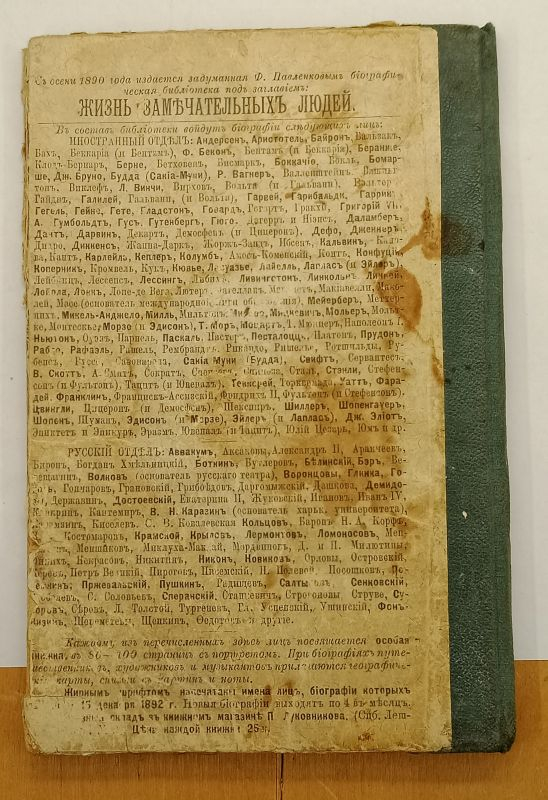 Съ осени 1890 года издается задуманная Ф. Павленковымъ біографи-
ческая библіотека подъ заглавіемъ:
ЖИЗНЬ ЗАМѢЧАТЕЛЬНЫХЪ ЛЮДЕЙ.
Въ составъ библіотеки войдутъ біографіи слѣдующихъ лицъ:
ИНОСТРАННЫЙ ОТДѢЛЪ: Андерсенъ, Аристотель, Байронъ, Бальзакъ,
Бахъ, Беккарія (и Бентамъ), Ф. Беконъ, Бентамъ (и Беккарія), Беранже,
Клодъ-Бернаръ, Берне, Бетховенъ, Бисмаркъ, Боккачіо, Бокль, Бомар-
ше, Дж. Бруно, Будда (Сакіа-Муни), Р. Вагнеръ, Валленштейнъ, Вашинг-
тонъ, Виклефъ, Л. Винчи, Вирховъ, Вольта (и Гальвани), Вольтеръ
Гайднъ, Галилей, Гальвани, (и Вольта), Гарвей, Гарибальди, Гаррикъ,
Гегель, Гейне, Гете, Гладстонъ, Говардъ, Гогартъ, Гракхи, Григорій VII,
А. Гумбольдтъ, Гусъ, Гутенбергъ, Гюго, Дагерръ и Ніэпсъ, Даламберъ,
Дантъ, Дарвинъ, Декартъ, Демосѳенъ (и Цицеронъ), Дефо, Дженнеръ,
Дидро, Диккенсъ, Жанна-Даркъ, Жоржъ-Зандъ, Ибсенъ, Кальвинъ,
Кантъ, Карлейль, Кеплеръ, Колумбъ, Амосъ-Коменскій, Контъ, Конфуцій,
Коперникъ, Кромвель, Кукъ, Кювье, Лавуазье, Лайелль, Лапласъ (и Эйлеръ),
Лейбницъ, Лессепсъ, Лессингъ, Либихъ, Ливингстонъ, Линкольнъ, Линней,
Лойола, Локкъ, Лопе-де Вега, Лютеръ, Магелланъ, Макіавелли,
лей, Мейерберъ, Меттер-
нихъ, Микель-Анджело, Милль, Мильтонъ, Мицкевичъ, Мольеръ, Мольт-
ке, Монтескье, Морзе (и Эдисонъ), Т. Моръ, Моцартъ, Т. Мюнцеръ, Наполеонъ I,
Ньютонъ, Оуэнъ, Парнель, Паскаль, Пастеръ, Песталоцци, Платонъ, Прудонъ,
Рабле, Рафаэль, Ренанъ, Рембрандтъ, Рикардо, Ришелье, Ротшильды, Ру-
бенсъ, Руссо, Савонарола, Сакіа Муни (Будда), Свифтъ, Сервантесъ,
В. Скоттъ, А. Смитъ, Сократъ, Спиноза, Сталь, Стэнли, Стефен-
сонъ (и Фультонъ), Тацитъ (и Ювеналъ), Теккерей, Торквемада, Уаттъ, Фара-
дей, Франклинъ, Францискъ-Ассизскій, Фридрихъ II, Фультонъ (и Стефенсонъ),
Цвингли, Цицеронъ (и Демосѳенъ), Шекспиръ, Шиллеръ, Шопенгауеръ,
Шопенъ, Шуманъ, Эдисонъ (и Морзе), Эйлеръ (и Лапласъ), Дж. Эліотъ,
Эпиктетъ и Эпикуръ, Эразмъ, Ювеналъ (и Тацитъ), Юлій Цезарь, Юмъ и др.
РУССКІЙ ОТДѢЛЪ: Аввакумъ, Аксаковы, Александръ II, Аракчеевъ,
Биронъ, Богданъ Хмѣльницкій, Боткинъ, Бутлеровъ, Бѣлинскій, Бэръ, Ве-
рещагинъ, Волковъ (основатель русскаго театра), Воронцовы, Глинка, Го-
голь, Гончаровъ, Грановскій, Грибоѣдовъ, Даргомыжскій, Дашкова, Демидо-
вы, Державинъ, Достоевскій, Екатерина II, Жуковскій, Ивановъ, Иванъ IV,
Канкринъ, Кантемиръ, В. Н. Каразинъ (основатель харьк. университета),
Карамзинъ, Киселевъ, С. В. Ковалевская Кольцовъ, Баронъ Н. А. Корфъ,
Костомаровъ, Крамской, Крыловъ, Лермонтовъ, Ломоносовъ, Мен-
Меншиковъ, Миклуха-Маклай, Мордвиновъ, Д. и Н. Милютины,
Некрасовъ, Никитинъ, Никонъ, Новиковъ, Орловы, Островскій,
Петръ Великій, Пироговъ, Писемскій, Н. Полевой Посошковъ, По-
темкинъ, Пржевальскій, Пушкинъ, Радищевъ, Салтыковъ, Сенковскій,
С. Соловьевъ, Сперанскій, Станкевичъ, Строгоновы Струве, Су-
воровъ, Сѣровъ, Л. Толстой, Тургеневъ, Гл. Успенскій, Ушинскій, Фонъ-
Визинъ, Шереметевы, Щепкинъ, Ѳедотовъ и другіе.
Каждому изъ перечисленныхъ здѣсь лицъ посвящается особая
книжка, въ 80—100 страницъ съ портретомъ. При біографіяхъ путе-
шественниковъ, художниковъ и музыкантовъ прилагаются географиче-
скія карты, снимки съ картинъ и ноты.
Жирнымъ шрифтомъ напечатаны имена лицъ, біографіи которыхъ
15 декабря 1892 г. Новыя біографіи выходятъ по 4 въ мѣсяцъ.
складъ въ книжномъ магазинѣ П. Луковникова. (Спб. Лешт-
Цѣна каждой книжки 25 к.